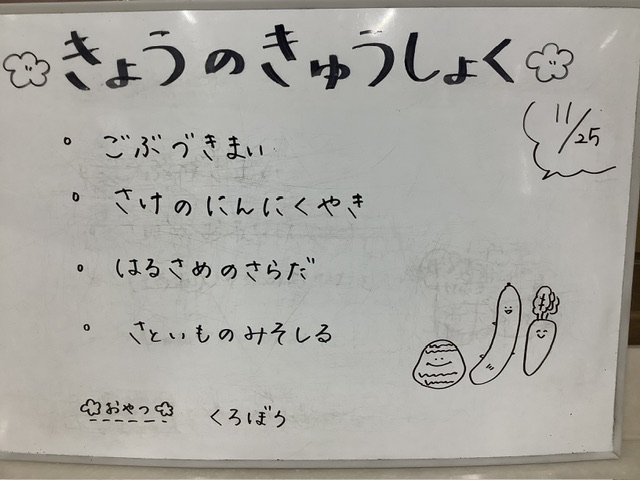 きょうのきゅうしょく
11/25
ごぶづきまい
さけのにんにくやき
はるさめのさらだ
さといものみそしる
おやつ くろぼう